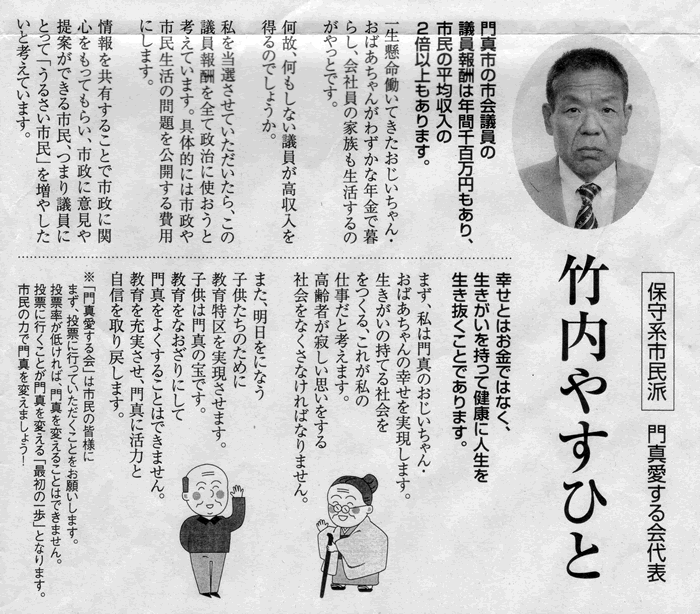 保守系市民派 門真愛する会代表
竹内やすひと
門真市の市会議員の
議員報酬は年間千百万円もあり、
市民の平均収入の
2倍以上もあります。
一生懸命働いてきたおじいちゃん・
おばあちゃんがわずかな年金で暮
らし、会社員の家族も生活するの
がやっとです。
何故、何もしない議員が高収入を
得るのでしょうか。
私を当選させていただいたら、この
議員報酬を全て政治に使おうと
考えています。具体的には市政や
市民生活の問題を公開する費用
にします。
情報を共有することで市政に関
心をもってもらい、市政に意見や
提案ができる市民、つまり議員に
とって「うるさい市民」を増やした
いと考えています。
幸せとはお金ではなく、
生きがいを持って健康に人生を
生き抜くことであります。
まず、私は門真のおじいちゃん・
おばあちゃんの幸せを実現します。
生きがいの持てる社会を
をつくる、これが私の
仕事だと考えます。
高齢者が寂しい思いをする
社会をなくさなければなりません。
また、明日をになう
子供たちのために
教育特区を実現させます。
子供は門真の宝です。
教育をなおざりにして
門真をよくすることはできません。
教育を充実させ、門真に活力と
自信を取り戻します。
※「門真愛する会」は市民の皆様に
まず、投票に行っていただくことをお願いします。
投票率が低ければ、門真を変えることはできません。
投票に行くことが門真を変える「最初の一歩」となります。
市民の力で門真を変えましょう!